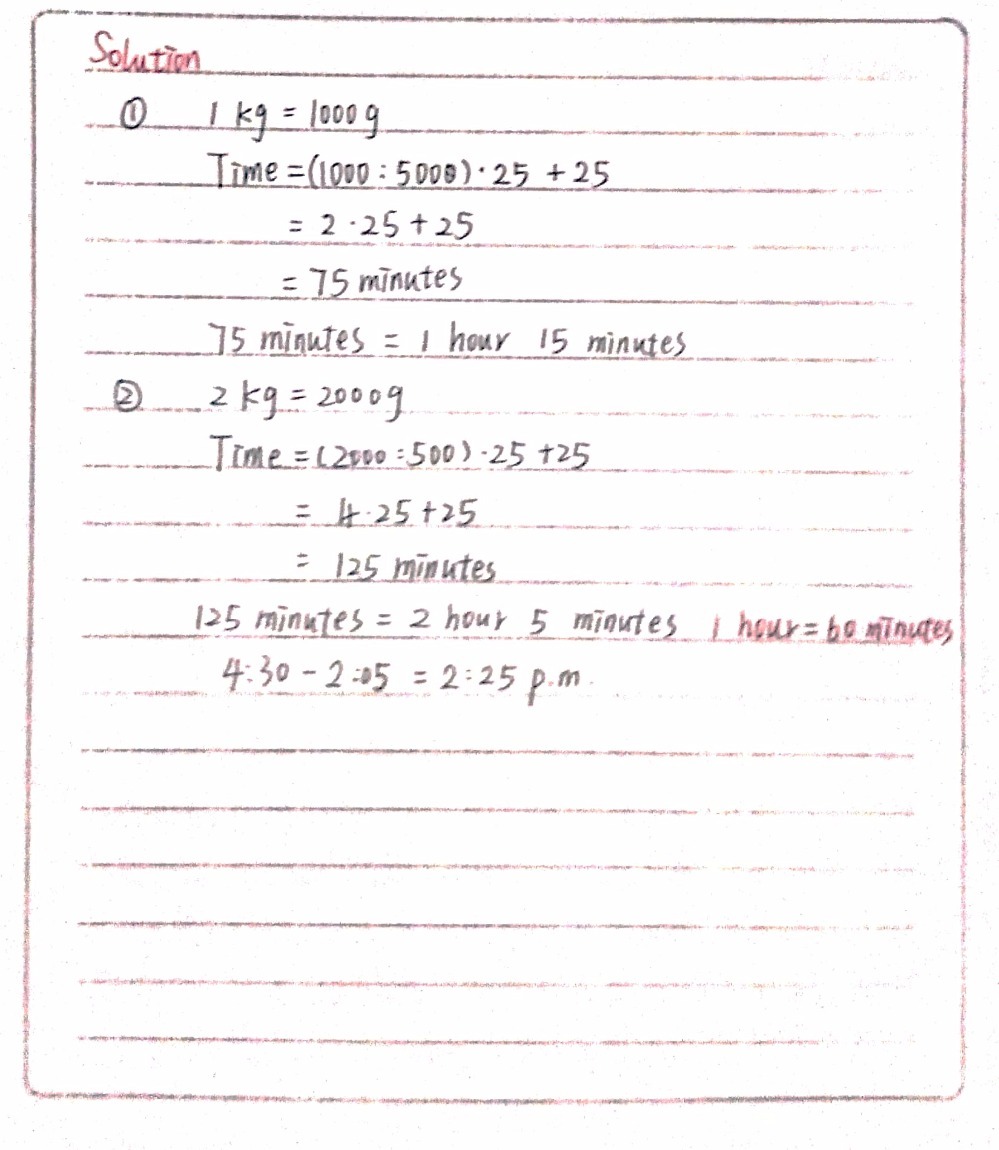 Solution
① 1 kg = 1000 g
Time = (1000 : 5000) · 25 + 25
= 2 · 25 + 25
= 75 minutes
75 minutes = 1 hour 15 minutes
② 2 kg = 2000 g
Time = (2000 : 500) · 25 + 25
= 4 · 25 + 25
= 125 minutes
125 minutes = 2 hour 5 minutes 1 hour = 60 minutes
4:30 - 2:05 = 2:25 p.m.